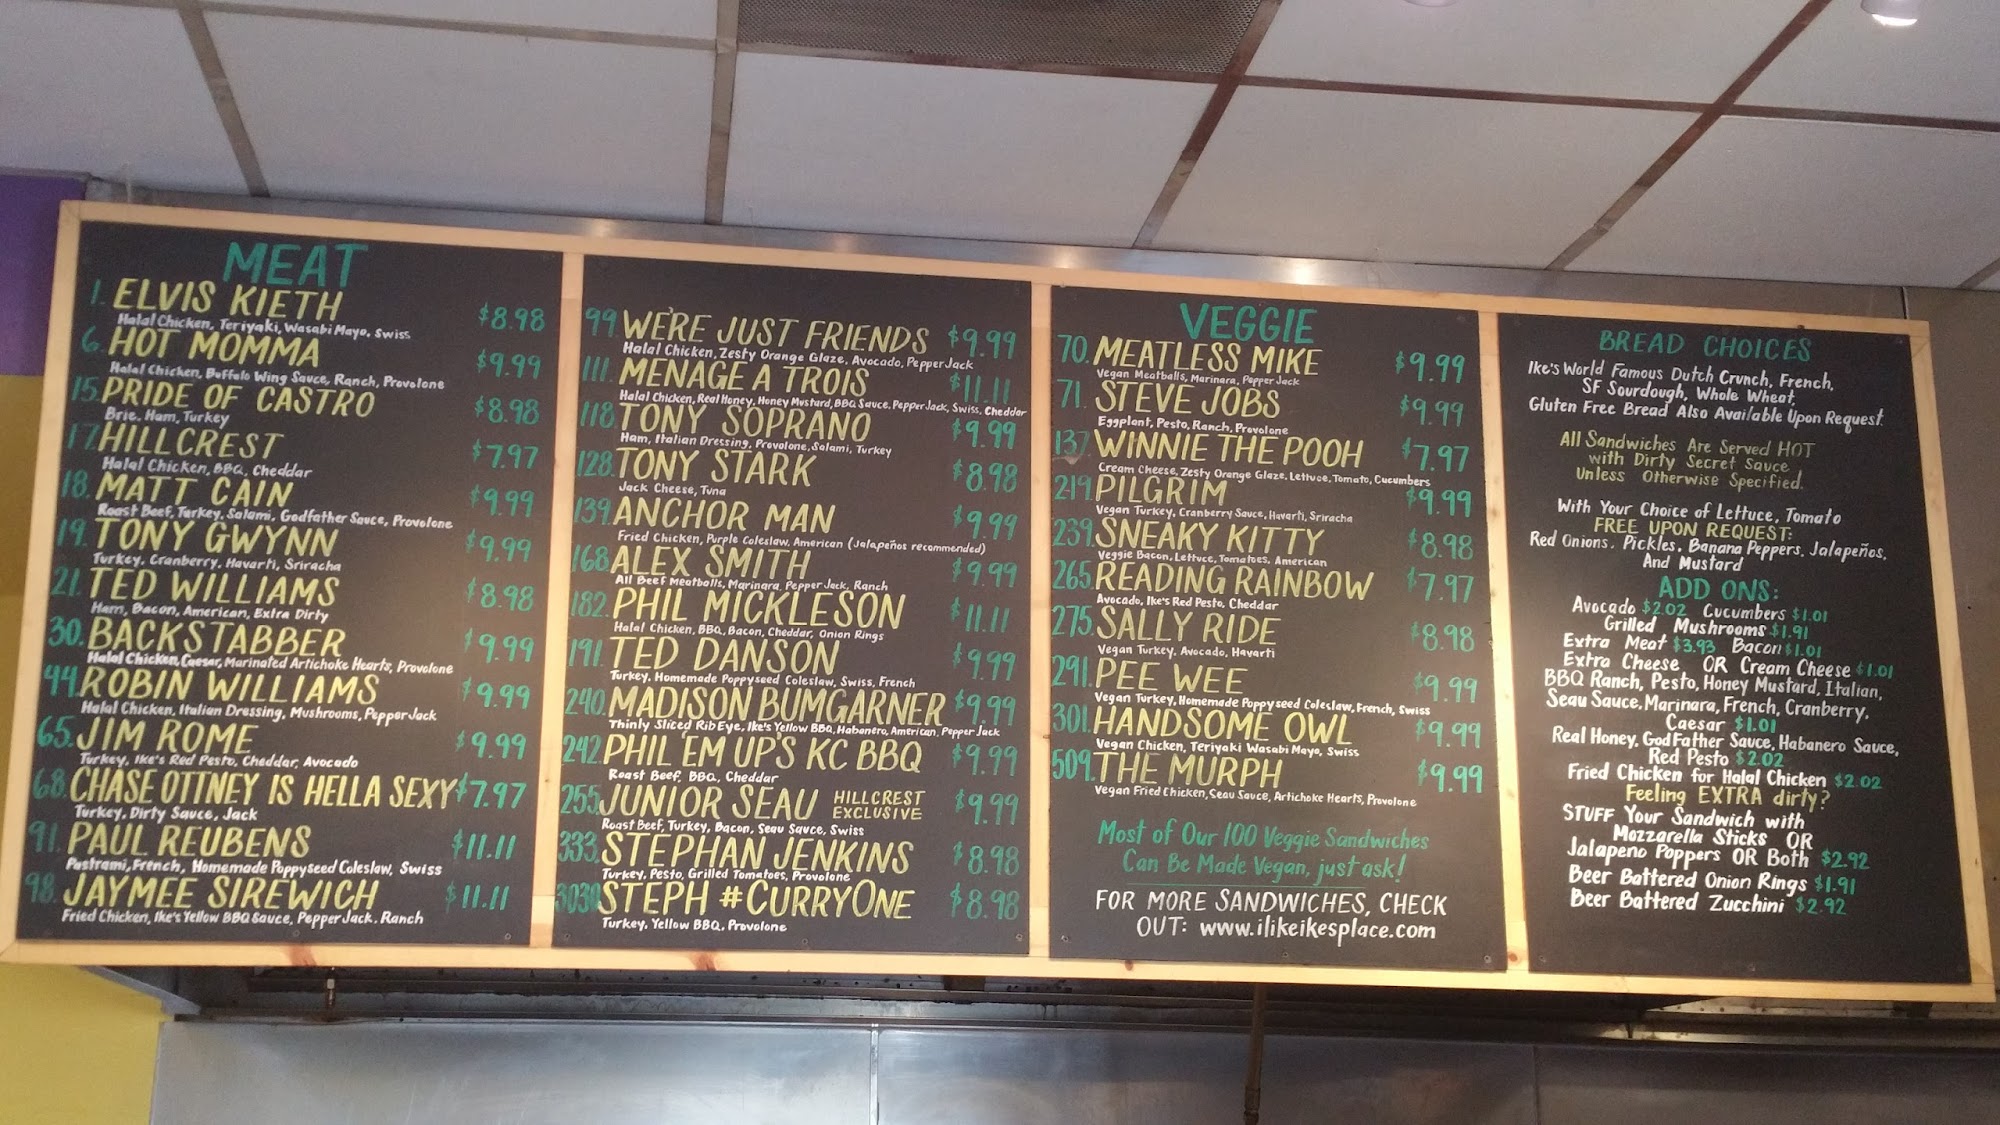 MEAT
1. ELVIS KIETH $8.98
Halal Chicken, Teriyaki, Wasabi Mayo, Swiss
6. HOT MOMMA $9.99
Halal Chicken, Buffalo Wing Sauce, Ranch, Provolone
15. PRIDE OF CASTRO $8.98
Brie, Ham, Turkey
17. HILLCREST $7.97
Halal Chicken, BBQ, Cheddar
18. MATT CAIN $9.99
Roast Beef, Turkey, Salami, Godfather Sauce, Provolone
19. TONY GWYNN $9.99
Turkey, Cranberry, Havarti, Sriracha
21. TED WILLIAMS $8.98
Ham, Bacon, American, Extra Dirty
30. BACKSTABBER $9.99
Halal Chicken, Caesar, Marinated Artichoke Hearts, Provolone
44. ROBIN WILLIAMS $9.99
Halal Chicken, Italian Dressing, Mushrooms, Pepper Jack
65. JIM ROME $9.99
Turkey, Ike's Red Pesto, Cheddar, Avocado
68. CHASE OTTNEY IS HELLA SEXY $7.97
Turkey, Dirty Sauce, Jack
91. PAUL REUBENS $11.11
Pastrami, French, Homemade Poppyseed Coleslaw, Swiss
98. JAYMEE SIREWICH $11.11
Fried Chicken, Ike's Yellow BBQ Sauce, Pepper Jack, Ranch
99 WE'RE JUST FRIENDS $9.99
Halal Chicken, Zesty Orange Glaze, Avocado, Pepper Jack
111. MENAGE A TROIS $11.11
Halal Chicken, Real Honey, Honey Mustard, BBQ Sauce, Pepper Jack, Swiss, Cheddar
118. TONY SOPRANO $9.99
Ham, Italian Dressing, Provolone, Salami, Turkey
128. TONY STARK $8.98
Jack Cheese, Tuna
139. ANCHOR MAN $9.99
Fried Chicken, Purple Coleslaw, American (Jalapeños recommended)
168. ALEX SMITH $9.99
All Beef Meatballs, Marinara, Pepper Jack, Ranch
182. PHIL MICKLESON $11.11
Halal Chicken, BBQ, Bacon, Cheddar, Onion Rings
191. TED DANSON $9.99
Turkey, Homemade Poppyseed Coleslaw, Swiss, French
240. MADISON BUMGARNER $9.99
Thinly Sliced Rib Eye, Ike's Yellow BBQ, Habanero, American, Pepper Jack
242. PHIL 'EM UP'S KC BBQ $9.99
Roast Beef, BBQ, Cheddar
255. JUNIOR SEAU HILLCREST EXCLUSIVE $9.99
Roast Beef, Turkey, Bacon, Seau Sauce, Swiss
333. STEPHAN JENKINS $8.98
Turkey, Pesto, Grilled Tomatoes, Provolone
3030. STEPH #CURRYONE $8.98
Turkey, Yellow BBQ, Provolone
VEGGIE
70. MEATLESS MIKE $9.99
Vegan Meatballs, Marinara, Pepper Jack
71. STEVE JOBS $9.99
Eggplant, Pesto, Ranch, Provolone
137. WINNIE THE POOH $7.97
Cream Cheese, Zesty Orange Glaze, Lettuce, Tomato, Cucumbers
219. PILGRIM $9.99
Vegan Turkey, Cranberry Sauce, Havarti, Sriracha
239. SNEAKY KITTY $8.98
Veggie Bacon, Lettuce, Tomatoes, American
265. READING RAINBOW $7.97
Avocado, Ike's Red Pesto, Cheddar
275. SALLY RIDE $8.98
Vegan Turkey, Avocado, Havarti
291. PEE WEE $9.99
Vegan Turkey, Homemade Poppyseed Coleslaw, French, Swiss
301. HANDSOME OWL $9.99
Vegan Chicken, Teriyaki Wasabi Mayo, Swiss
509. THE MURPH $9.99
Vegan Fried Chicken, Seau Sauce, Artichoke Hearts, Provolone
Most of Our 100 Veggie Sandwiches
Can Be Made Vegan, just ask!
FOR MORE SANDWICHES, CHECK
OUT: www.ilikeikesplace.com
BREAD CHOICES
Ike's World Famous Dutch Crunch, French,
SF Sourdough, Whole Wheat,
Gluten Free Bread Also Available Upon Request.
All Sandwiches Are Served HOT
with Dirty Secret Sauce
Unless Otherwise Specified.
With Your Choice of Lettuce, Tomato
FREE UPON REQUEST:
Red Onions, Pickles, Banana Peppers, Jalapeños,
And Mustard
ADD ONS:
Avocado $2.02 Cucumbers $1.01
Grilled Mushrooms $1.91
Extra Meat $3.93 Bacon $1.01
Extra Cheese OR Cream Cheese $1.01
BBQ Ranch, Pesto, Honey Mustard, Italian,
Seau Sauce, Marinara, French, Cranberry,
Caesar $1.01
Real Honey, God Father Sauce, Habanero Sauce,
Red Pesto $2.02
Fried Chicken for Halal Chicken $2.02
Feeling EXTRA dirty?
STUFF Your Sandwich with
Mozzarella Sticks OR
Jalapeno Poppers OR Both $2.92
Beer Battered Onion Rings $1.91
Beer Battered Zucchini $2.92